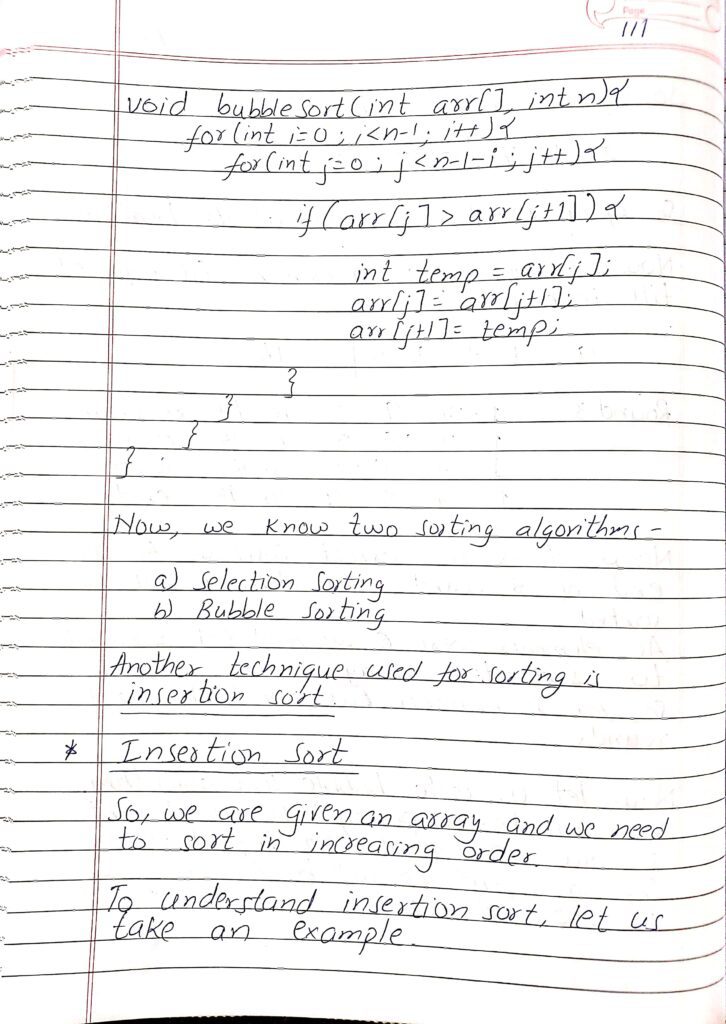 Page
111
void bubblesort(int arr[], int n){
for(int i=0; i<n-1; i++){
for(int j=0; j<n-1-i; j++){
if (arr[j] > arr[j+1]) {
int temp = arr[j];
arr[j] = arr[j+1];
arr[j+1] = temp;
}
}
}
}
Now, we know two sorting algorithms -
a) Selection Sorting
b) Bubble Sorting
Another technique used for sorting is
insertion sort.
* Insertion Sort
So, we are given an array and we need
to sort in increasing order.
To understand insertion sort, let us
take an example.